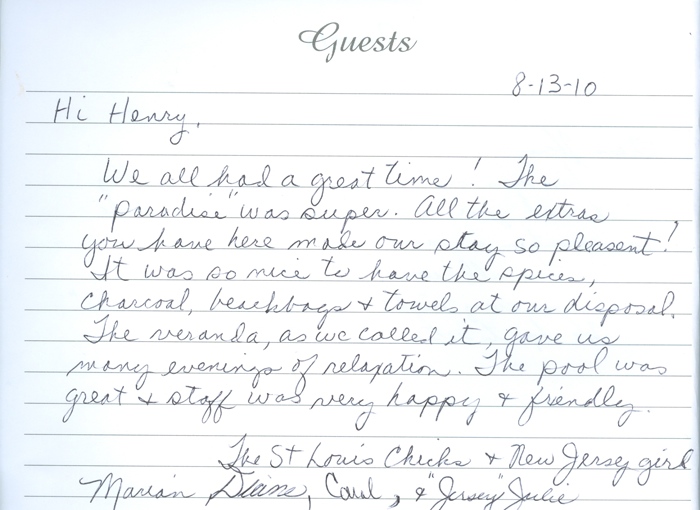 Guests
8-13-10
Hi Henry,
We all had a great time! The
"paradise" was super. All the extras
you have here made our stay so pleasent!
It was so nice to have the spices,
charcoal, beachbags & towels at our disposal.
The veranda, as we called it, gave us
many evenings of relaxation. The pool was
great & staff was very happy & friendly.
The St Louis Chicks & New Jersey girl
Marian Diane, Carol, & "Jersey" Julie